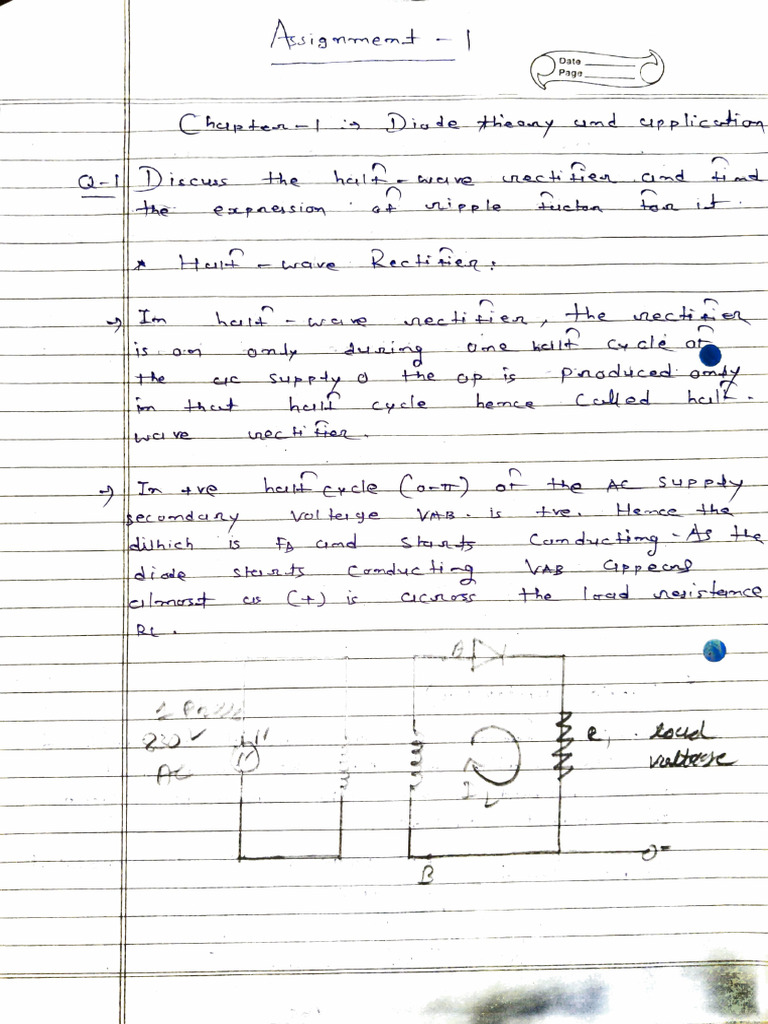 Assignment - 1
Date
Page
Chapter-1 :> Diode theory and application
Q-1 Discuss the half-wave rectifier and find
the expression of ripple factor for it.
* Half-wave Rectifier:
→ In half-wave rectifier, the rectifier
is on only during one half cycle of
the ac supply & the op is produced only
in that half cycle hence called half.
wave rectifier.
→ In +ve half cycle (0-π) of the AC supply
secondary voltage VAB. is +ve. Hence the
is FB and starts conducting. As the
diode starts conducting VAB appears
almost as (+) is across the load resistance
RL.
230 V
AC
IL
load
voltage
B